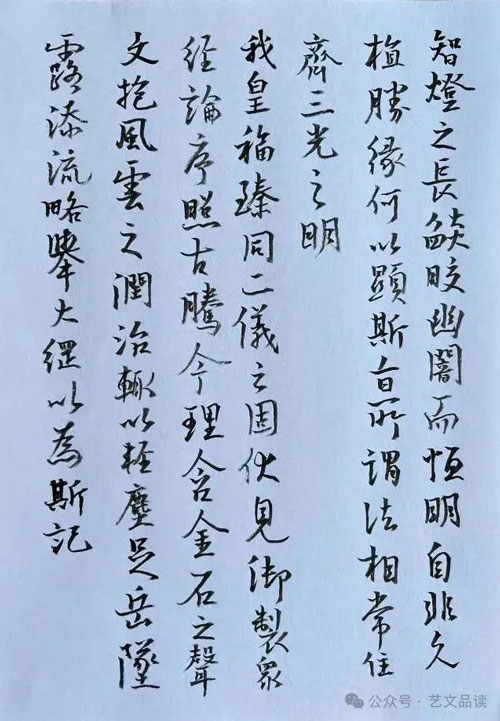 智燈之長燄皎幽闇而恒明自非久
植勝緣何以顯斯旨所謂法相常住
齊三光之明
我皇福臻同二儀之固伏見御製眾
經論序照古騰今理含金石之聲
文抱風雲之潤治輙以輕塵足岳墜
露添流略舉大綱以為斯記
公众号·艺文品读